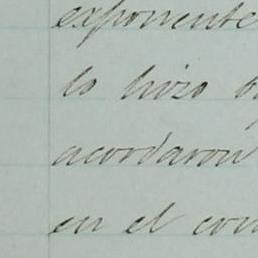 exponente
lo hizo
acordaron
en el con